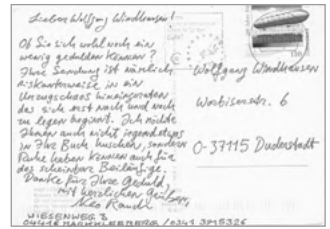 Lieber Wolfgang Windhausen!
Ob Sie sich wohl noch ein
wenig gedulden können?
Ihre Sendung ist nämlich
riskanterweise in ein
Umzugschaos hineingeraten
das sich erst nach und nach
zu legen beginnt. Ich möchte
Ihnen auch nicht irgendetwas
in Ihr Buch huschen, sondern
Ruhe haben können auch für
das scheinbar Beiläufige.
Danke für Ihre Geduld,
mit herzlichen Grüßen,
Neo Rauch
WIESENWEG 3
04416 MARKKLEEBERG /0341 3815326
Wolfgang Windhausen
Worbiserstr. 6
D-37115 Duderstadt
110